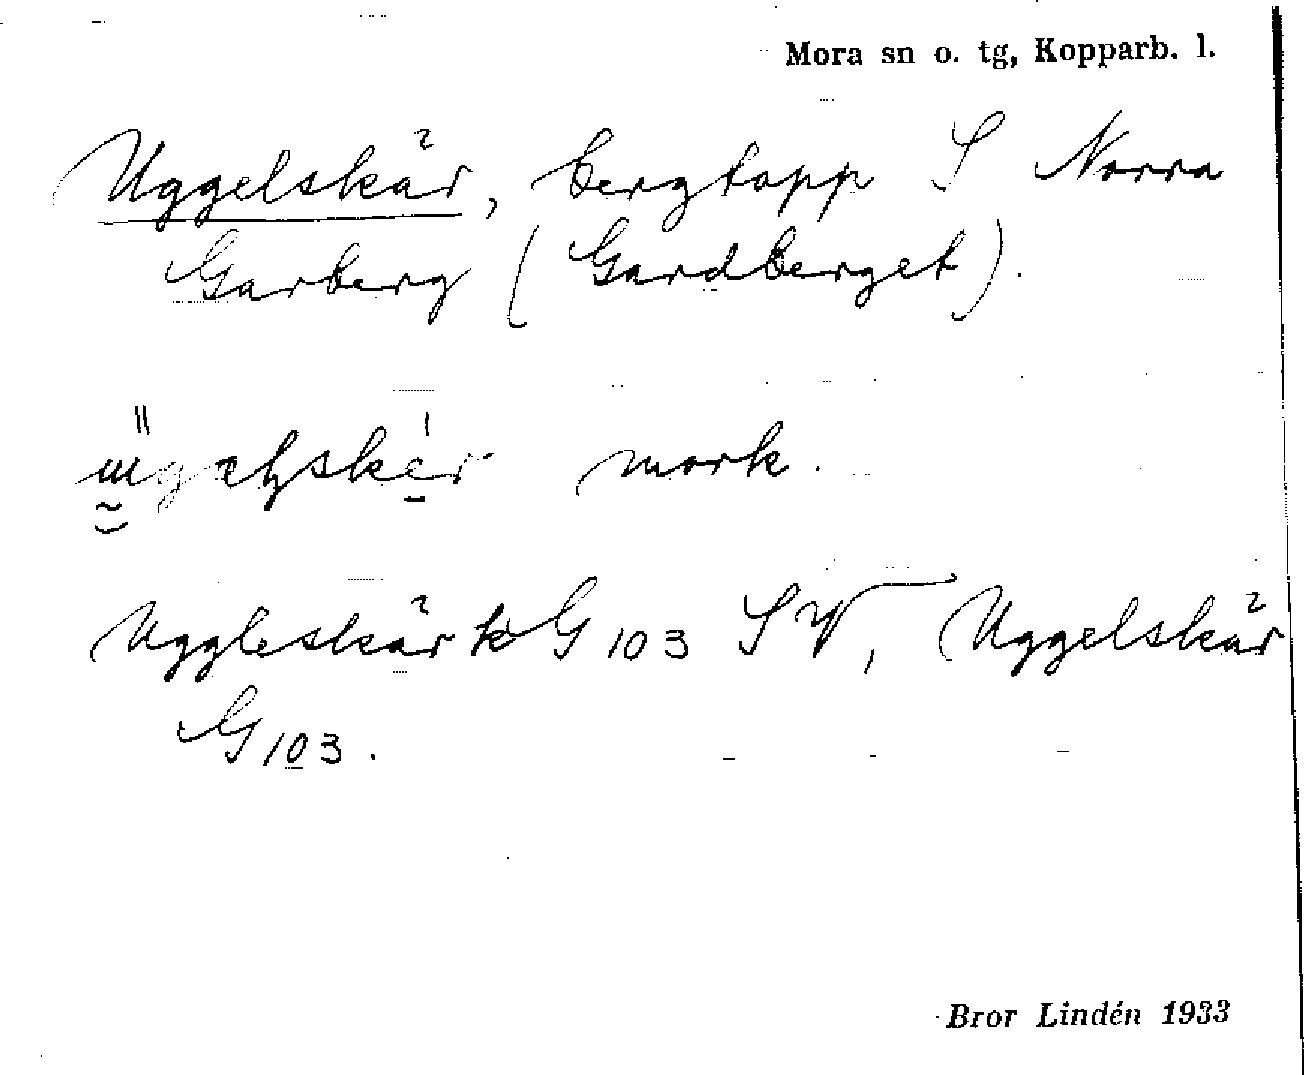 Mora sn o. tg, Kopparb. l.
Uggelskär, bergtopp S Norra
Garberg (Gardberget).
mork.
Uggleskär k G 103 SV, Uggelskär
G 103.
Bror Lindén 1933